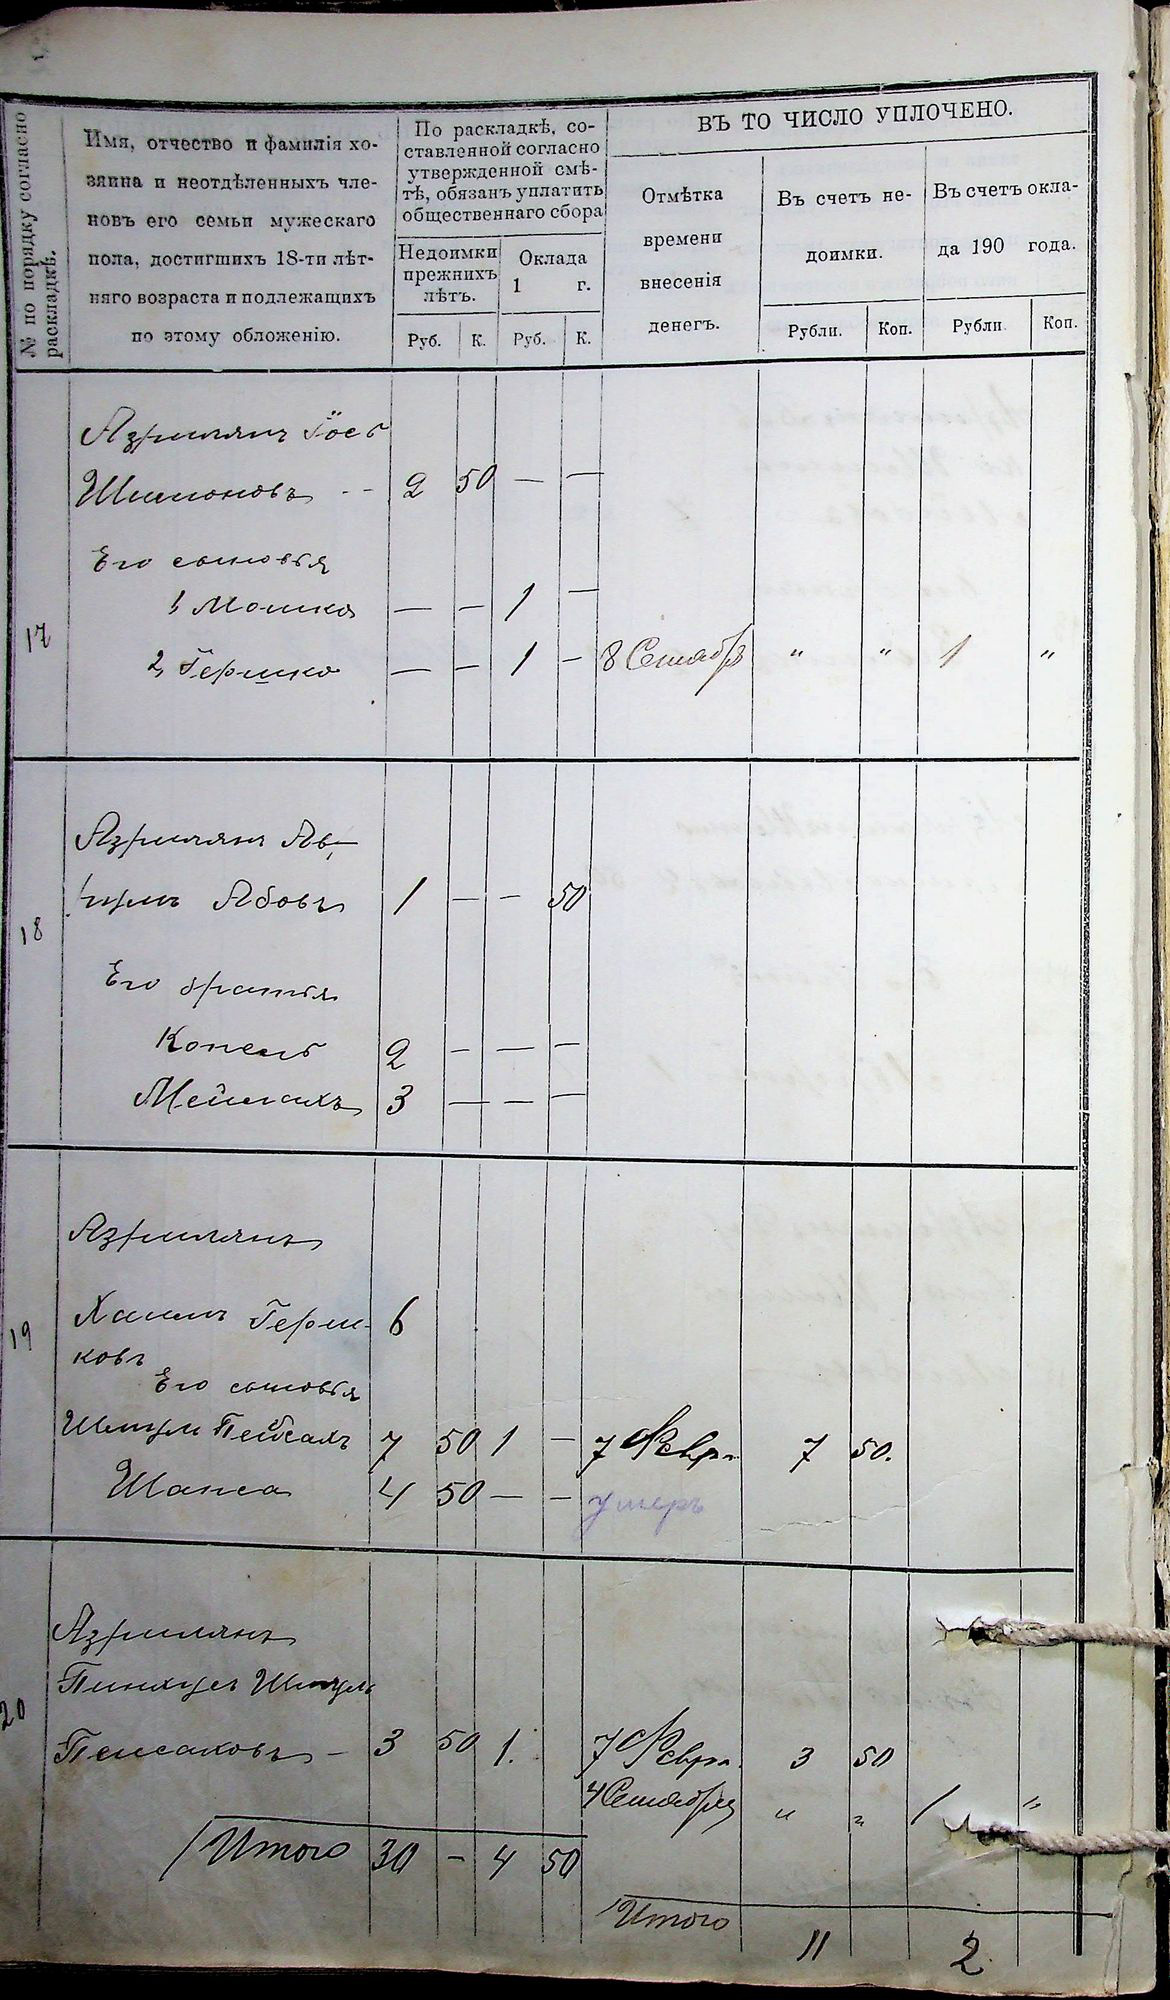 № по порядку согласно раскладкѣ.
Имя, отчество и фамилія хо-
зяина и неотдѣленныхъ чле-
новъ его семьи мужескаго
пола, достигшихъ 18-ти лѣт-
няго возраста и подлежащихъ
по этому обложенію.
По раскладкѣ, со-
ставленной согласно
утвержденной смѣ-
тѣ, обязанъ уплатить
общественнаго сбора
Недоимки прежнихъ лѣтъ.
Оклада 1 г.
Руб. К. Руб. К.
ВЪ ТО ЧИСЛО УПЛОЧЕНО.
Отмѣтка
времени
внесенія
денегъ.
Въ счетъ не-
доимки.
Въ счетъ окла-
да 190 года.
Рубли. Коп. Рубли Коп.
Азрилянъ Іось
Шимоновъ -- 2 50 — —
Его сыновья
1, Мошко — — 1 —
17
2, Гершко — — 1 — 8 Сентябр " " 1 "
Азрилянъ Ав-
румъ Абовъ 1 — — 50
18
Его братья
Копель 2 — — —
Мейлахъ 3 — — —
Азрилянъ
19
Хаимъ Герш- 6
ковъ
Его сыновья
Шмуль Пейсахъ 7 50 1 — 7 Февр. 7 50.
Шапса 4 50 — — умеръ
Азрилянъ
Пинхусъ Шмуль
20
Пейсаховъ - 3 50 1. 7 Февр. 3 50
4 Сентября " " 1 "
Итого 30 - 4 50
Итого 11 2